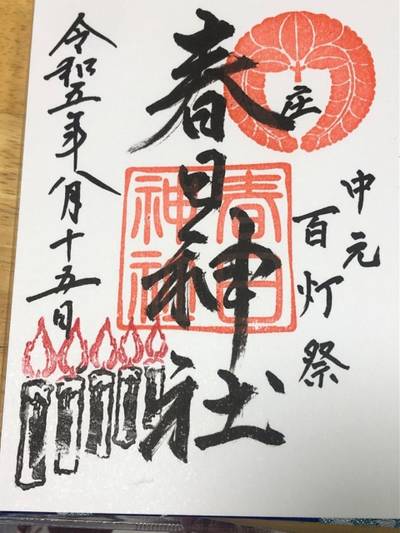 庄
中元
百灯祭
春日神社
春日神社
令和五年八月十五日